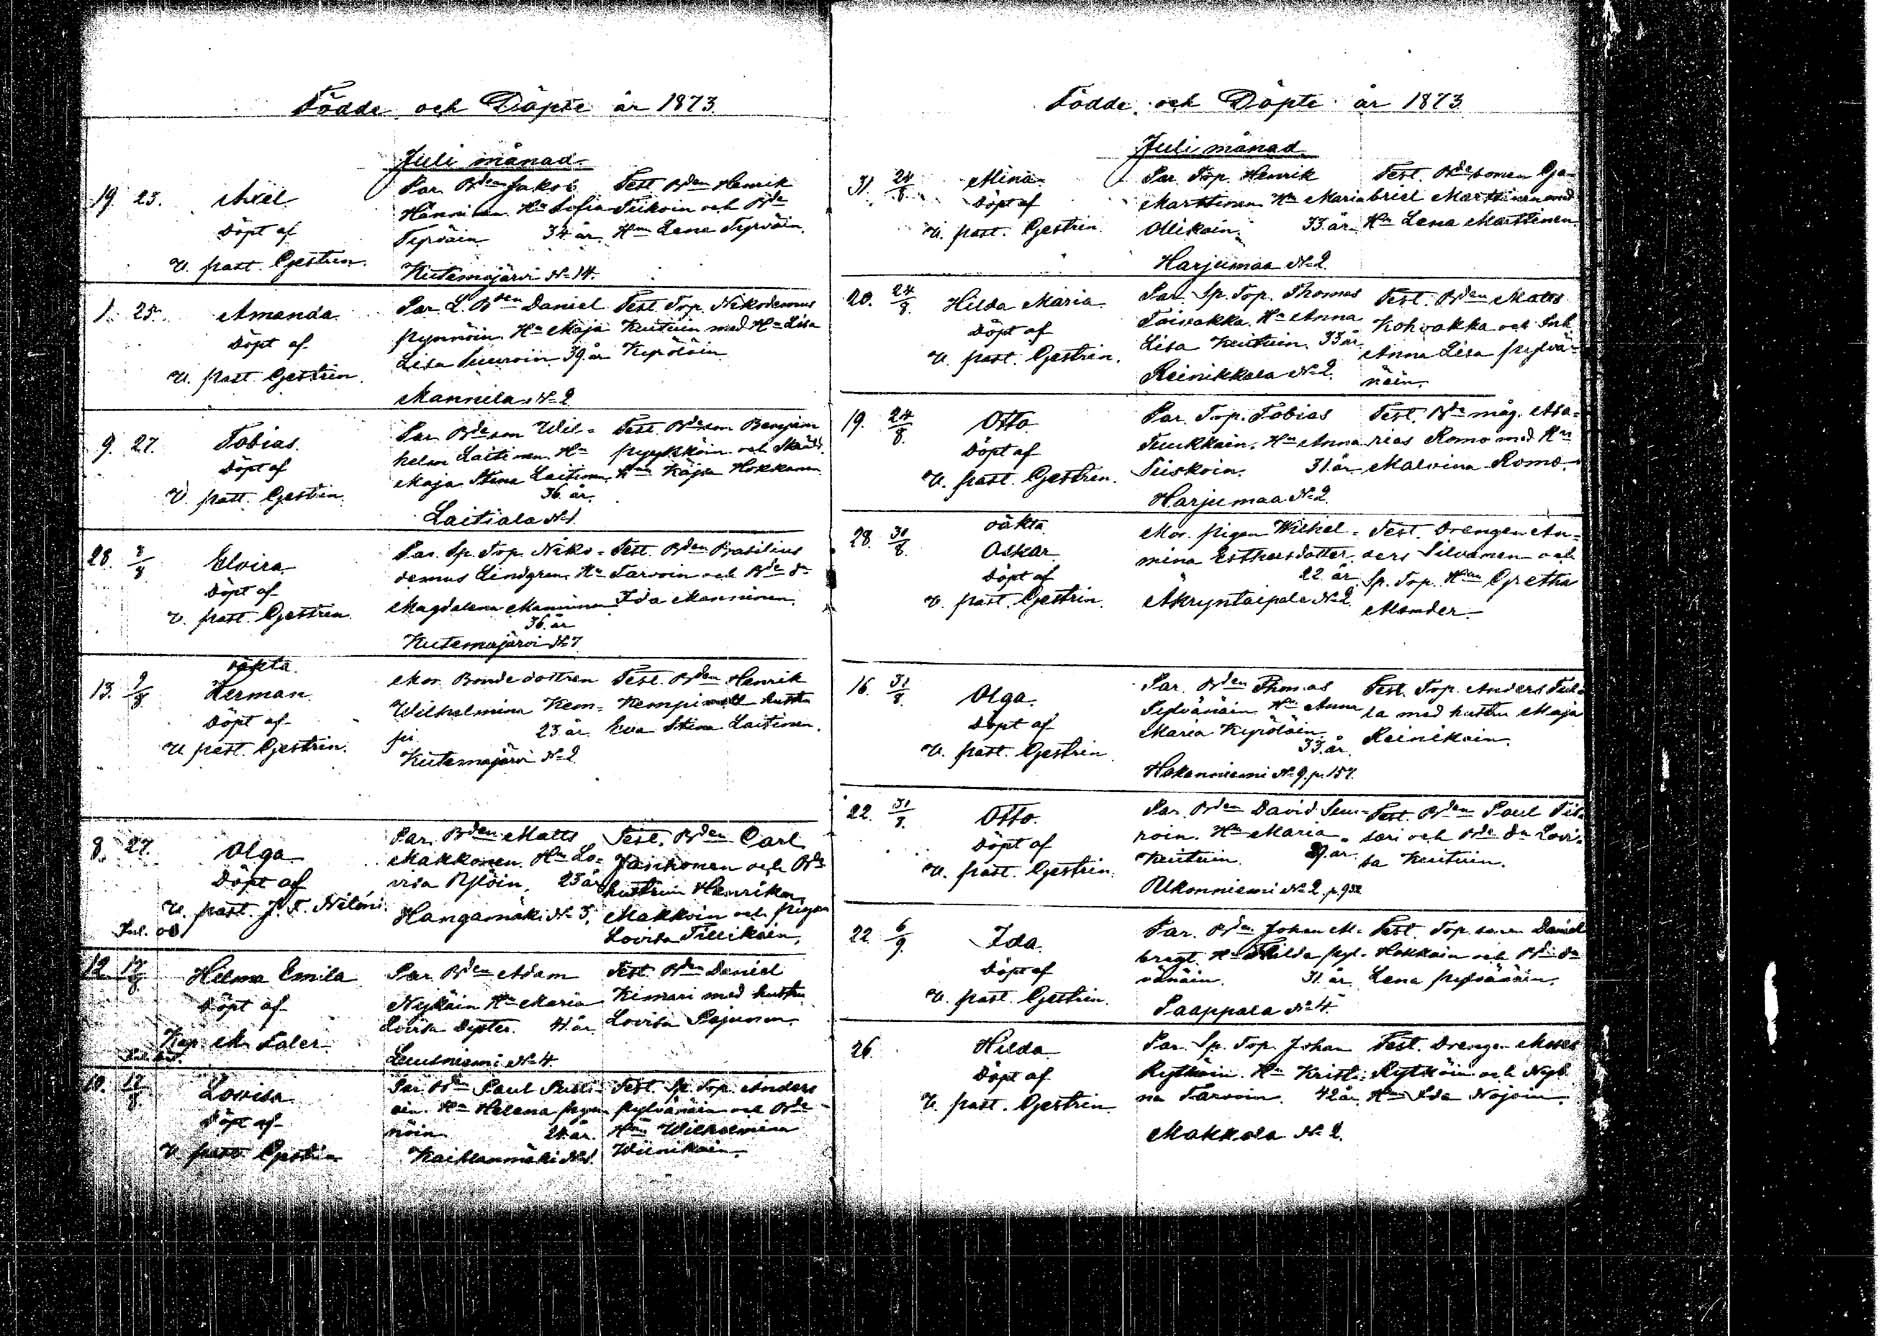 Födde och Döpte år 1873.
Juli månad
19. 23. Axel
Döpt af
V. past. Gestrin.
Par. Bden Jakob
Hänninen Hn Sofia
Tyrväin 34 år
Kutemajärvi No 14.
Test. Bden Henrik
Teikoin och Bde
Hun Lena Tyrväin.
1. 25. Amanda
Döpt af
V. past. Gestrin.
Par. L. Bden Daniel
Pynnöin, Hn Maja
Lisa Suuroin 39 år
Mannila No 2
Test. Top. Nikodemus
Keutuin med Hn Lisa
Kypöläin
9. 27. Tobias.
Döpt af
V. past. Gestrin
Par. Bdeson Wil-
helm Laitinen, Hn
Maja Stina Laitinen
36 år.
Laitiala No 1.
Test. Bdeson Benjam
Hun Kajsa Hokkanen
28. 3/8 Elvira
Döpt af
V. past. Gestrin
Par. Sp. Top. Niko-
demus Lindgren, Hn
Magdalena Manninen
36 år
Kutemajärvi No 7
Test. Bden Basilius
Tarvoin och Bde dn
Ida Manninen.
13. 9/8 oäkta
Herman
Döpt af
V. past. Gestrin.
Mor. Bondedottren
Wilhelmina Kem-
pi 23 år
Kutemajärvi No 2
Test. Bden Henrik
Kempi med hustru
Eva Stina Laitinen.
8. 27. Olga
Döpt af
V. past. J. F. Nilóni
Par. Bden Matts
Makkonen, Hn Lo-
visa Ylöin, 23 år
Hangasmäki No 3,
Test. Bden Carl
Janhonen och Bde
hustrun Henrika
Makkoin och pigan
Lovisa Tillikain,
12 17/8 Hilma Emila
Döpt af
Kap. M. Faler
Par. Bden Adam
Nykäin Hn Maria
Lovisa Dypter. 41 år
Luulniemi No 4
Test. Bden Daniel
Kimari med hustru
Lovisa Pajunen.
10. 17/8 Lovisa
Döpt af
V. past. Gestrin
Par. Bden Paul Parti-
ain. Hn Helena Pyn-
nöin 24 år.
Kaihlanmäki No 1.
Test. Sp. Top. Anders
Pylvänäin och Bde
Hun Wilhelmina
Wiinikain.
Födde och Döpte år 1873
Juli månad
31. 24/8 Mina
Döpt af
V. past. Gestrin
Par. Top. Henrik
Marttinen Hn Maria
Ollikain, 33 år
Harjumaa No 2
Test. Bdesonen Ga-
briel Marttinen med
Hn Lena Marttinen
20. 24/8. Hilda Maria
Döpt af
V. past. Gestrin.
Par. Sp. Top. Thomas
Toivakka, Hn Anna
Lisa Keutuin. 33 år
Reinikkala No 2.
Test. Bden Matts
Kohvakka och Inh.
Anna Lisa Pylvä-
näin.
19. 24/8 Otto
Döpt af
V. past. Gestrin.
Par. Top. Tobias
Tuukkain, Hn Anna
Tiiskoin. 31 år
Harjumaa No 2.
Test. Bde måg. Asa-
rias Romo med Hn
Malvina Romo.
28. 31/8. oäkta
Oskar
Döpt af
V. past. Gestrin.
Mor. pigan Wilhel-
mina Esthersdotter
22 år
Äkryntaipale No 2
Test. Drengen An-
ders Silvanen och
Sp. Top. Hun Gretha
Mander.
16. 31/8. Olga.
Döpt af
V. past. Gestrin
Par. Bden Thomas
Pylvänäin Hn Anna
Maria Kypöläin
33 år.
Hokanniemi No 9. p. 157.
Test. Top. Anders Tuh-
la med hustru Maja
Reinikain.
22. 31/8. Otto.
Döpt af
V. past. Gestrin
Par. Bden David Suu-
roin. Hn Maria
Keutuin. 29 år
Ukonniemi No 2.
Test. Bden Paul Tii-
sari och Bde dn Lovi-
sa Keutuin.
22. 6/9. Ida.
Döpt af
V. past. Gestrin.
Par. Bden Johan
Hn Hilda Pyl-
vänäin. 31 år
Paappala No 4.
Test. Top. sonen Daniel
Hokkain och Bde dn
Lena Pylvänäin.
26 Hilda
Döpt af
V. past. Gestrin
Par. Sp. Top. Johan
Rytköin. Hn Kristi-
na Tarvoin. 42 år
Makkola No 2.
Test. Drengen Moses
Rytköin och Nyb.
Hun Ida Nojoin.